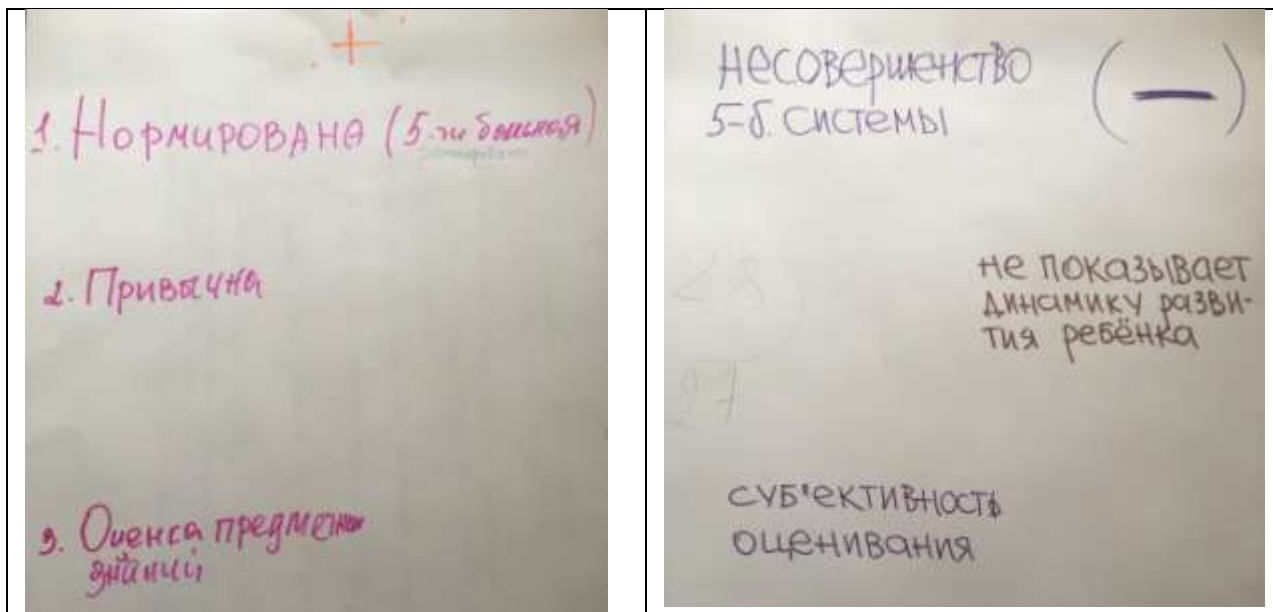 +
1. Нормирована (5-ти бальная)
2. Привычна
3. Оценка предметн
знаний
несовершенство (—)
5-б. системы
28
27
не показывает
динамику разви-
тия ребёнка
суб'ективность
оценивания